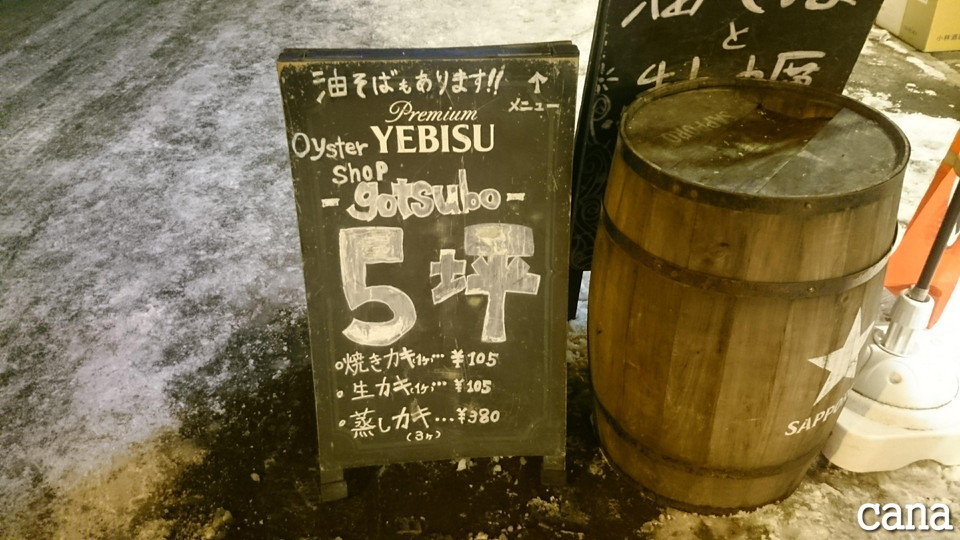 油そばもあります!! ↑
メニュー
Premium
YEBISU
Oyster
shop
- gotsubo -
5坪
焼きカキ(1ヶ)…¥105
生カキ(1ヶ)…¥105
蒸しカキ…¥380
(3ヶ)
と
SAPPO
cana